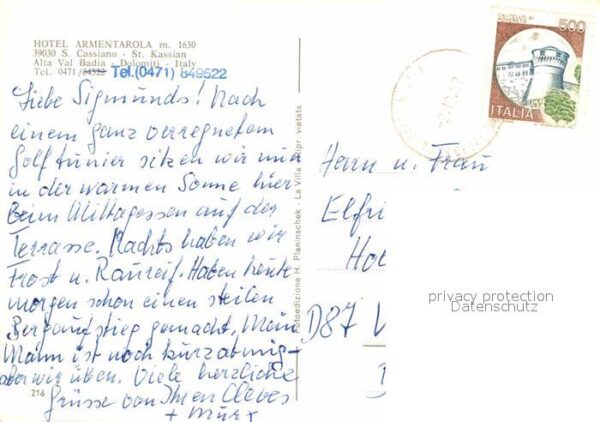 HOTEL ARMENTAROLA m. 1630
39030 S. Cassiano - St. Kassian
Alta Val Badia - Dolomiti - Italy
Tel. 0471/84522 Tel.(0471) 849522
Liebe Sigmunds! Nach
einem ganz verregnetem
Golftunier sitzen wir nun
in der warmen Sonne hier
beim Mittagessen auf der
Terrasse. Nachts haben wir
Frost u. Raureif. Haben heute
morgen schon einen steilen
Bergaufstieg gemacht, Mein
Mann ist noch kurzatmig -
aber wir üben. Viele herzliche
Grüsse von Ihren Cleves
216
Fotoedizione H. Planinschek - La Villa Ripr. vietata
500
ITALIA
Herrn u. Frau
Elfri
Ho
D87
privacy protection
Datenschutz